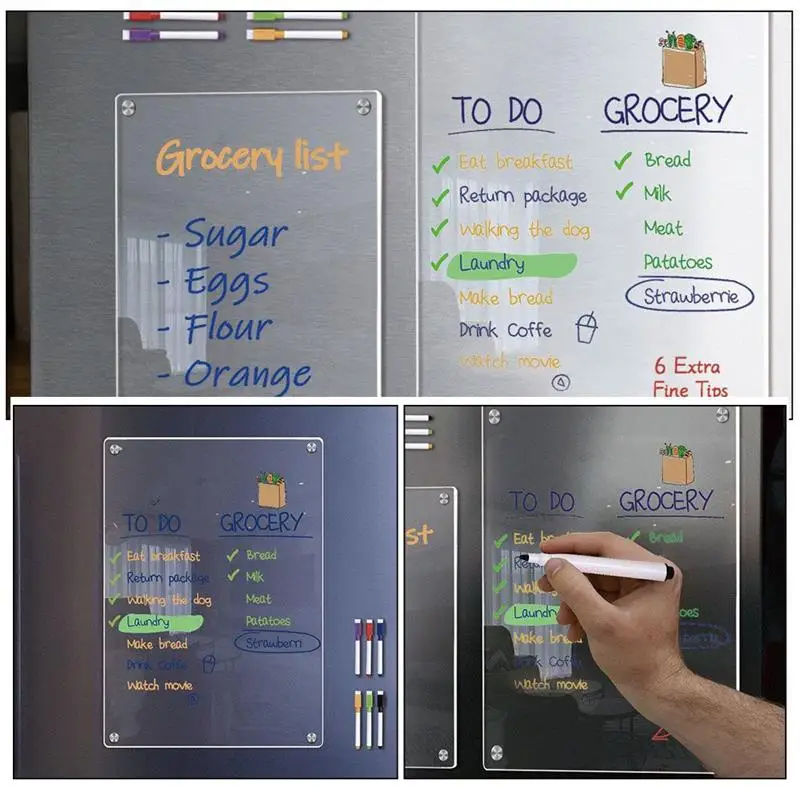 Grocery list
- Sugar
- Eggs
- Flour
- Orange
TO DO
Eat breakfast
Return package
Walking the dog
Laundry
Make bread
Drink Coffe
Watch movie
GROCERY
Bread
Milk
Meat
Patatoes
Strawberrie
6 Extra
Fine Tips
TO DO
Eat breakfast
Return package
Walking the dog
Laundry
Make bread
Drink Coffe
Watch movie
GROCERY
Bread
Milk
Meat
Patatoes
Strawberri
st
TO DO
Eat
Laundry
Make bre
Drink Coff
Watch movie
GROCERY
Bread
oes